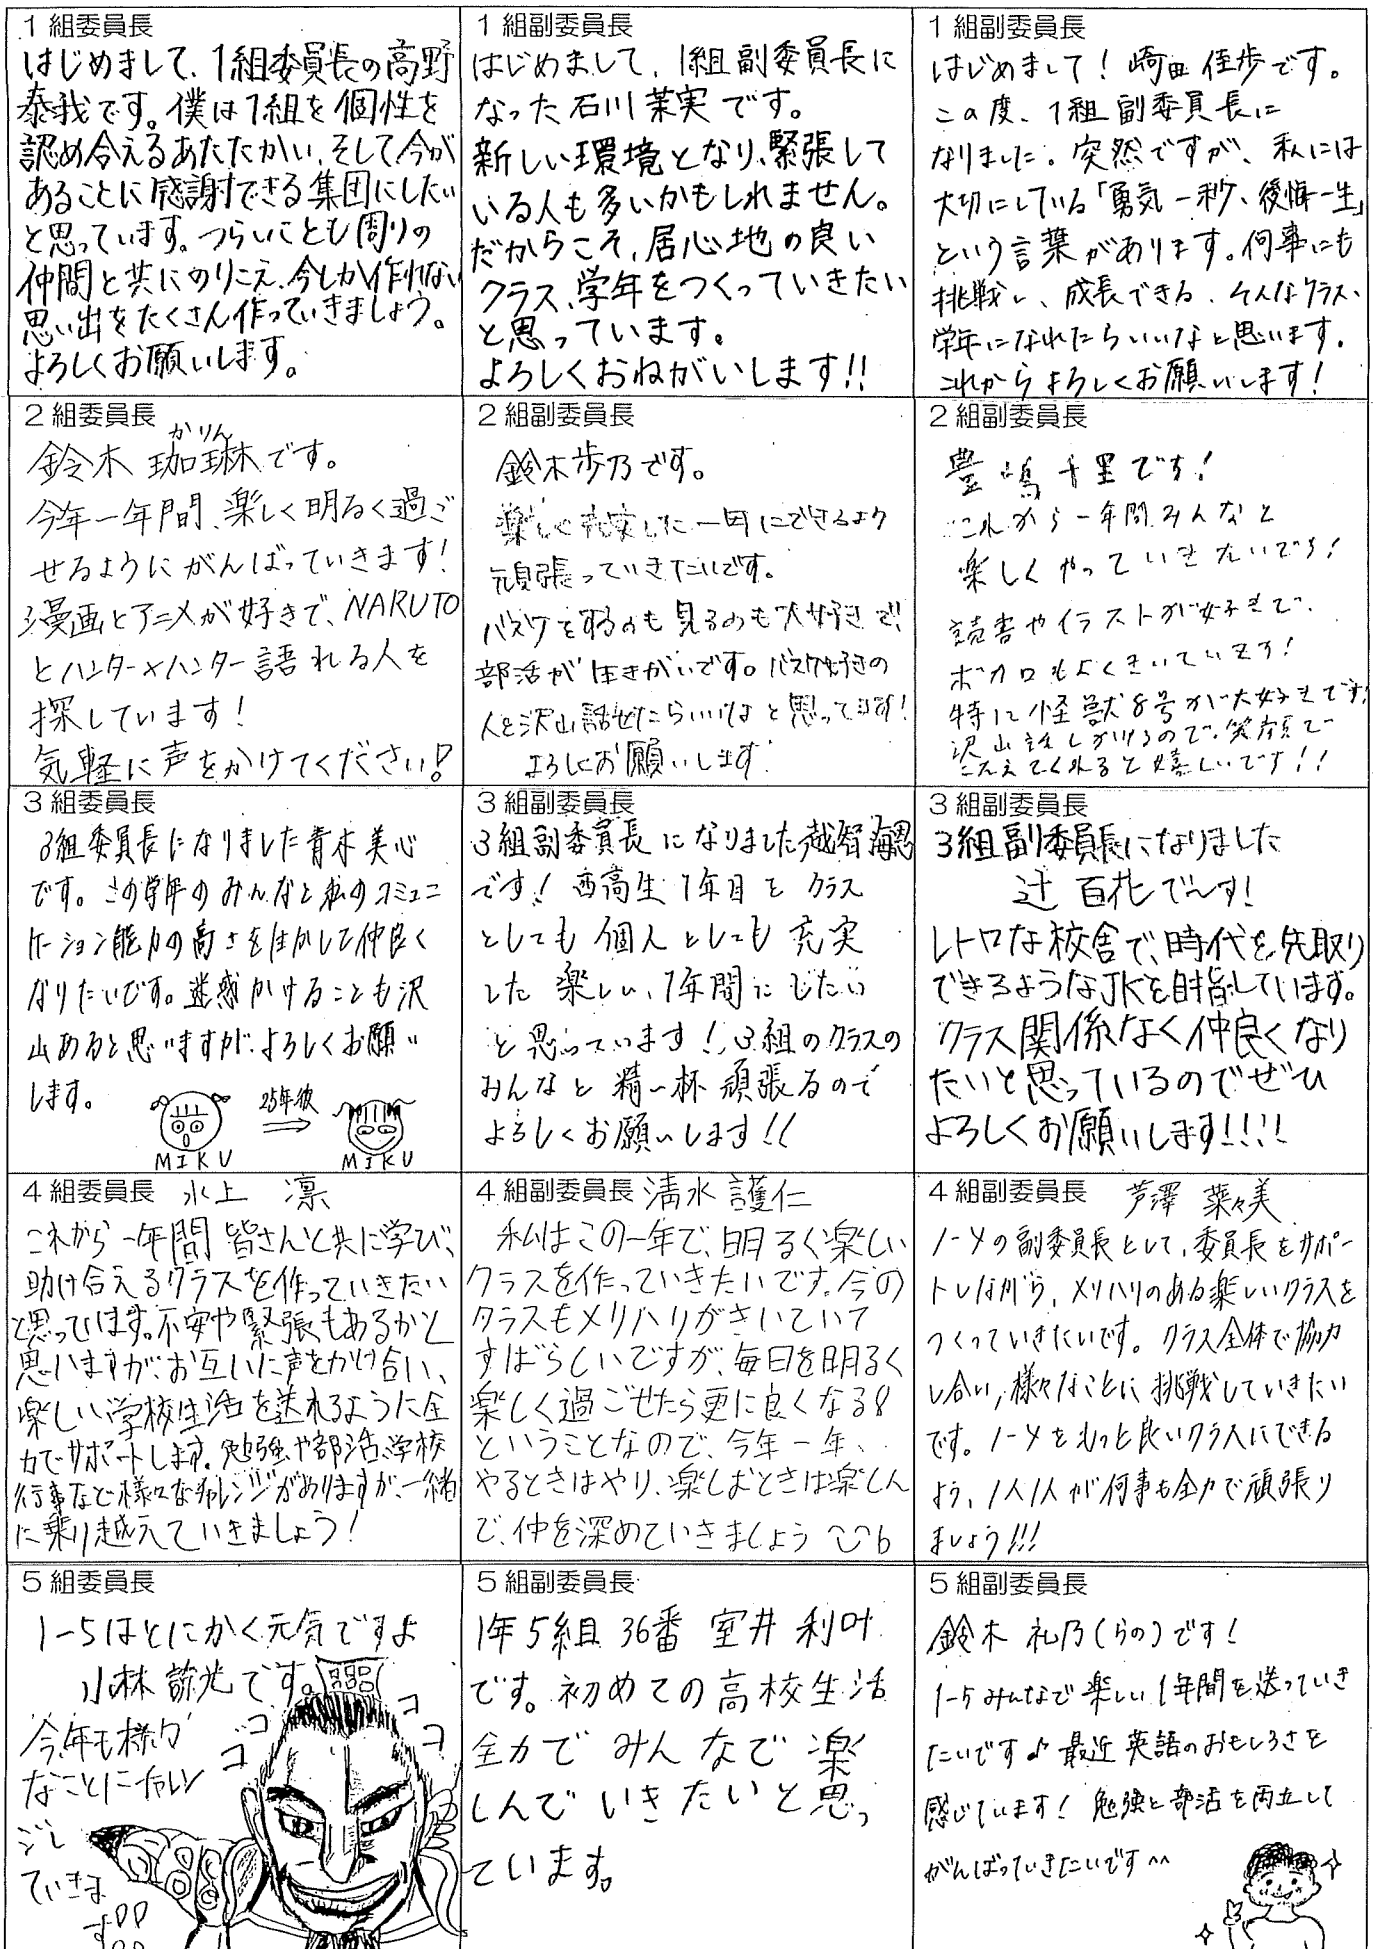 1組委員長
はじめまして、1組委員長の高野
泰我です。僕は1組を個性を
認め合えるあたたかい、そして今が
あることに感謝できる集団にしたい
と思っています。つらいことも周りの
仲間と共にのりこえ、今しか作れない
思い出をたくさん作っていきましょう。
よろしくお願いします。
1組副委員長
はじめまして、1組副委員長に
なった石川茉実です。
新しい環境となり、緊張して
いる人も多いかもしれません。
だからこそ、居心地の良い
クラス、学年をつくっていきたい
と思っています。
よろしくおねがいします!!
1組副委員長
はじめまして!崎田佳歩です。
この度、1組副委員長に
なりました。突然ですが、私には
大切にしている「勇気一秒、後悔一生」
という言葉があります。何事にも
挑戦し、成長できる、そんなクラス、
学年になれたらいいなと思います。
これからよろしくお願いします!
2組委員長
かりん
鈴木 珈琳です。
今年一年間、楽しく明るく過ご
せるようにがんばっていきます!
漫画とアニメが好きで、NARUTO
とハンター×ハンター語れる人を
探しています!
気軽に声をかけてください!
2組副委員長
鈴木歩乃です。
楽しく充実した一年にできるよう
頑張っていきたいです。
バスケをするのも見るのも大好きで、
部活が生きがいです。バスケ好きの
人と沢山話せたらいいなと思ってます!
よろしくお願いします
2組副委員長
豊嶋千里です!
これから一年間みんなと
楽しくやっていきたいです!
読書やイラストが好きで、
ボカロもよくきいています!
特に怪獣8号が大好きです!
沢山話しかけるので、笑顔で
こたえてくれると嬉しいです!!
3組委員長
3組委員長になりました青木美心
です。この学年のみんなと私のコミュニ
ケーション能力の高さを生かして仲良く
なりたいです。迷惑かけることも沢
山あると思いますが、よろしくお願い
します。
25年後
MIKU
MIKU
3組副委員長
3組副委員長になりました越智
です!西高生1年目をクラス
としても個人としても充実
した楽しい、1年間にしたい
と思っています!3組のクラスの
みんなと精一杯頑張るので
よろしくお願いします!!
3組副委員長
3組副委員長になりました
辻 百花で〜す!
レトロな校舎で、時代を先取り
できるようなJKを目指しています。
クラス関係なく仲良くなり
たいと思っているのでぜひ
よろしくお願いします!!!!
4組委員長 水上 凛
これから一年間皆さんと共に学び、
助け合えるクラスを作っていきたい
と思っています。不安や緊張もあるかと
思いますが、お互いに声をかけ合い、
楽しい学校生活を送れるように全
力でサポートします。勉強や部活、学校
行事など様々なチャレンジがありますが、一緒
に乗り越えていきましょう!
4組副委員長 清水 護仁
私はこの一年で、明るく楽しい
クラスを作っていきたいです。今の
クラスもメリハリがきいていて
すばらしいですが、毎日を明るく
楽しく過ごせたら更に良くなる!
ということなので、今年一年、
やるときはやり、楽しむときは楽しん
で、仲を深めていきましょう
4組副委員長 芦澤 菜々美
1-4の副委員長として、委員長をサポー
トしながら、メリハリのある楽しいクラスを
つくっていきたいです。クラス全体で協力
し合い、様々なことに挑戦していきたい
です。1-4をもっと良いクラスにできる
よう、1人1人が何事も全力で頑張り
ましょう!!!
5組委員長
1-5はとにかく元気ですよ
小林 諒光です。
今年も様々
なことにチャレン
ジし
ていきま
す!!
ゴゴゴゴ
5組副委員長
1年5組 36番 室井 利叶
です。初めての高校生活
全力でみんなで楽
しんでいきたいと思っ
ています。
5組副委員長
鈴木 礼乃(らの)です!
1-5みんなで楽しい1年間を送っていき
たいです♪最近英語のおもしろさを
感じています!勉強と部活を両立して
がんばっていきたいです^^